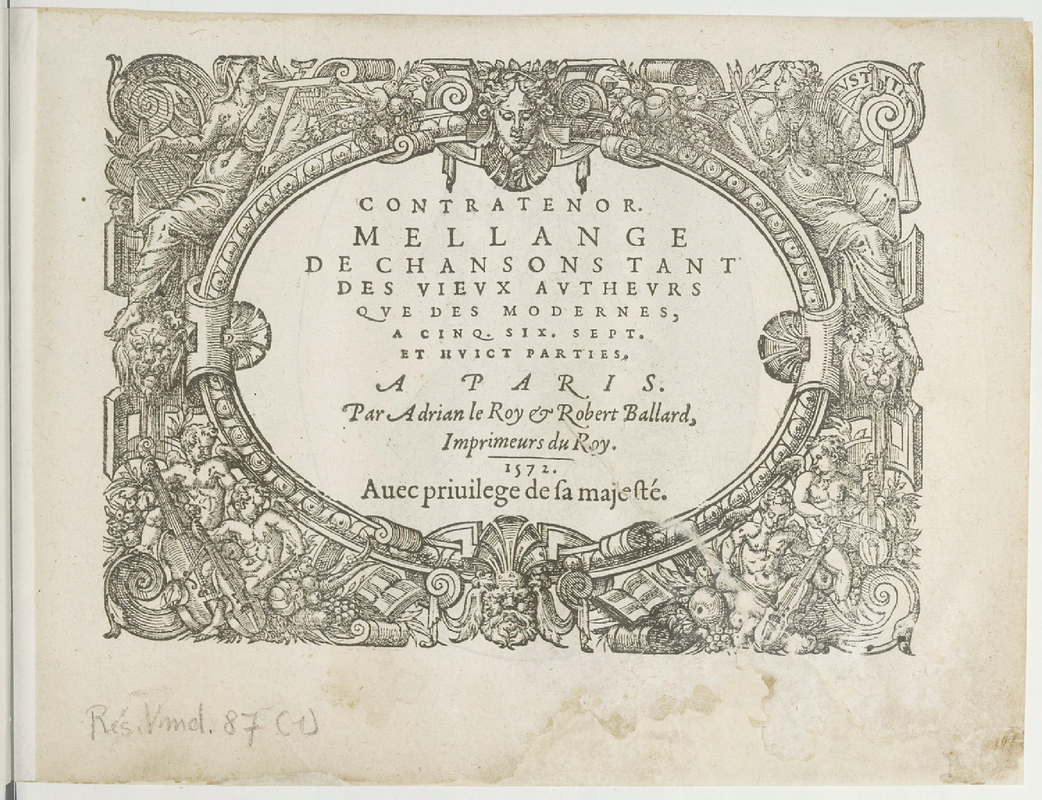 IVSTITIA
CONTRATENOR.
MELLANGE
DE CHANSONS TANT
DES VIEVX AVTHEVRS
QVE DES MODERNES,
A CINQ. SIX. SEPT.
ET HVICT PARTIES.
A PARIS.
Par Adrian le Roy & Robert Ballard,
Imprimeurs du Roy.
1572.
Auec priuilege de sa majesté.
Rés. Vmd. 87 (1)